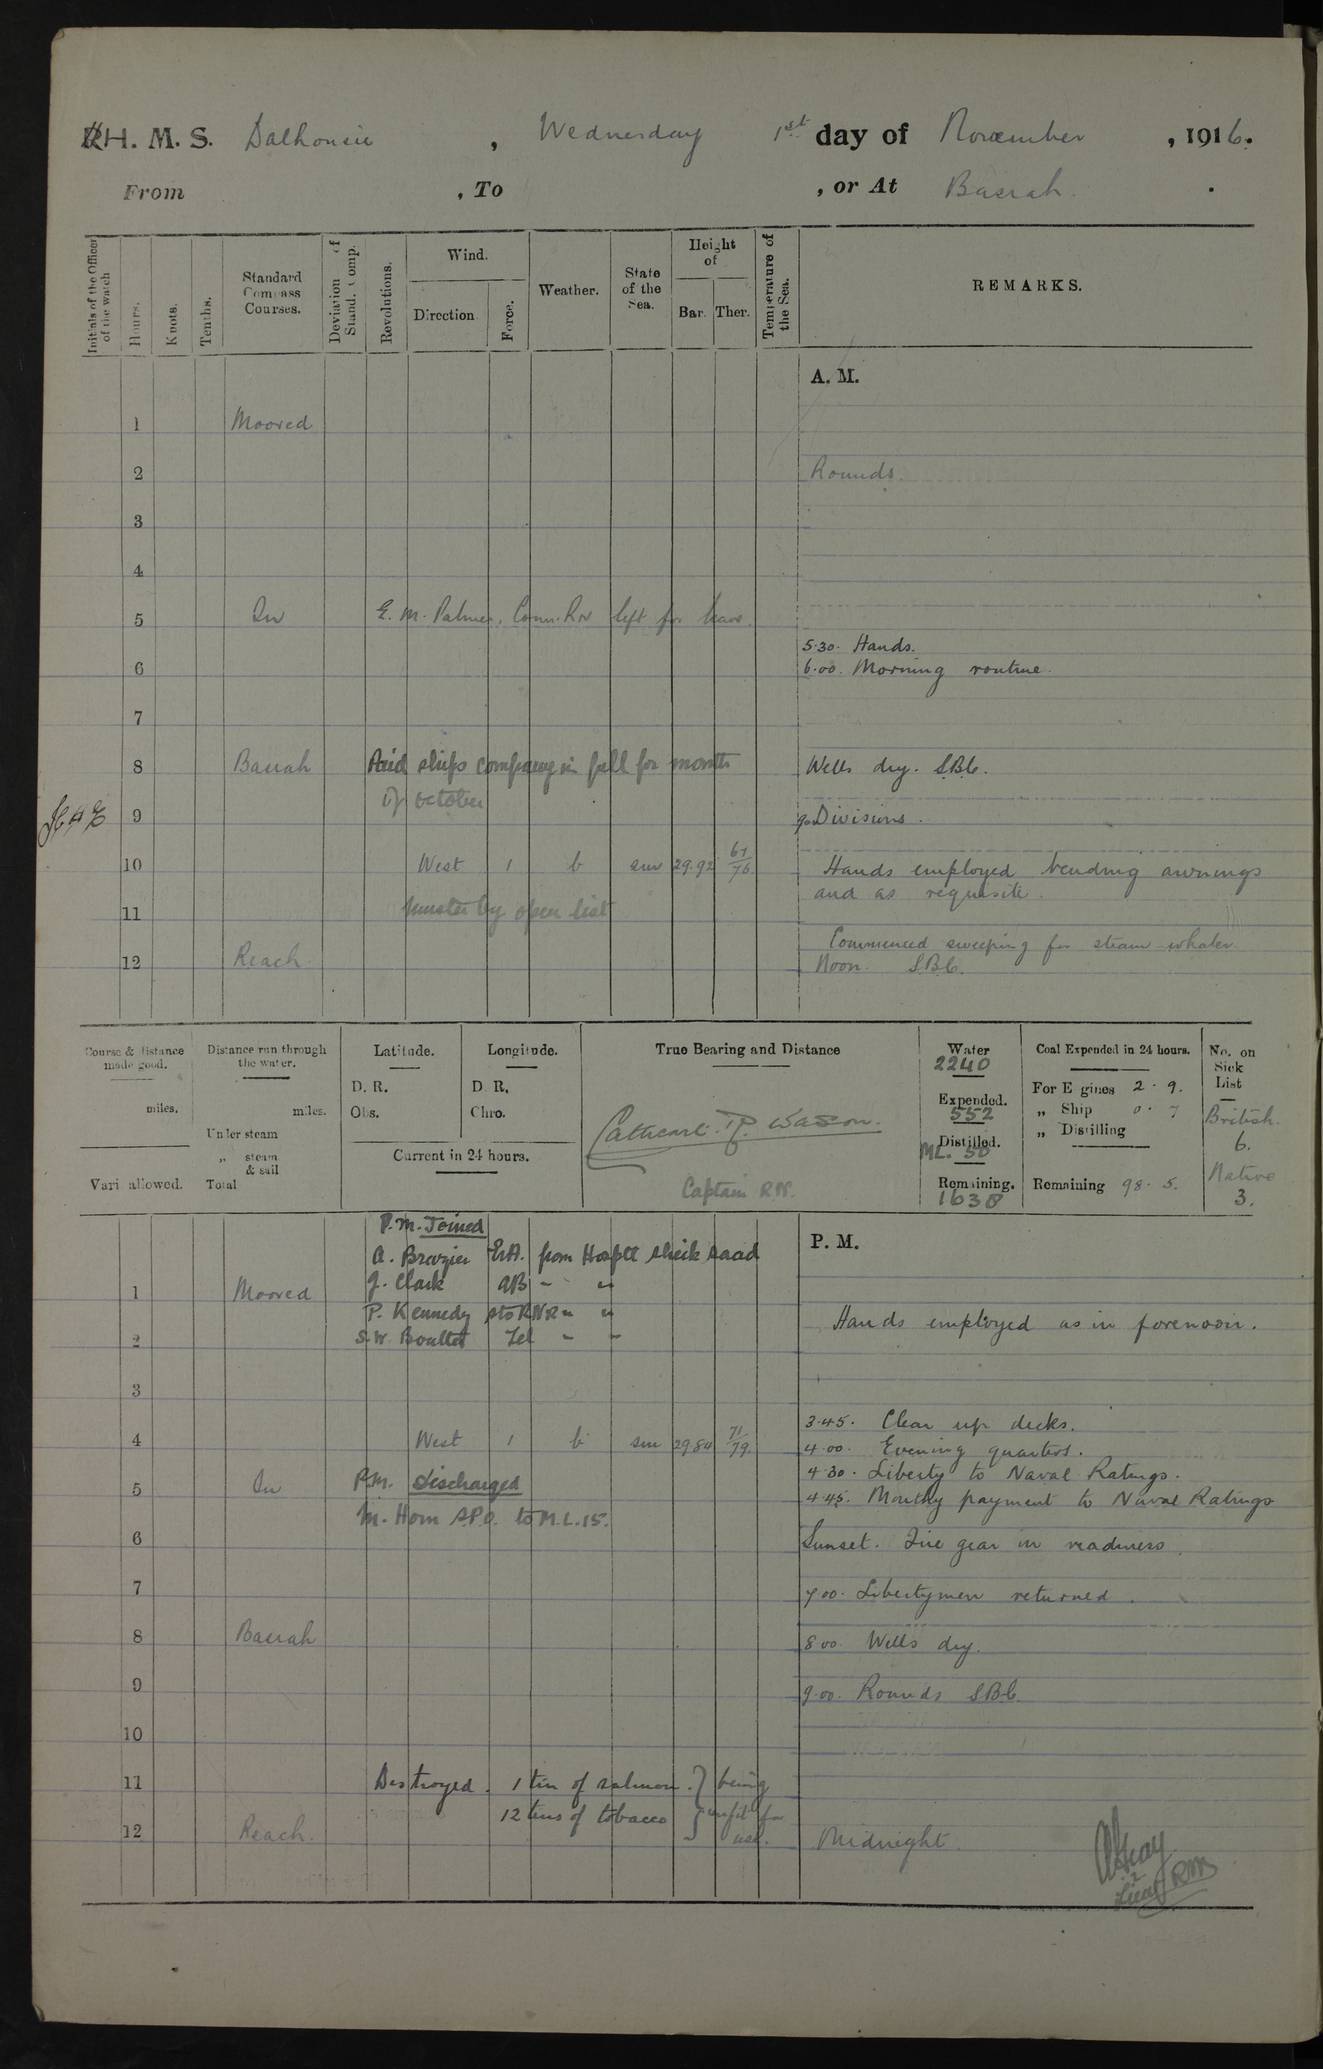 H. M. S. Dalhousie, Wednesday 1st day of November, 1916.
From , To , or At Basrah.
Initials of the Officer of the watch
Hours.
Knots.
Tenths.
Standard Compass Courses.
Deviation of Stand. Comp.
Revolutions.
Wind.
Direction
Force.
Weather.
State of the Sea.
Height of
Bar. Ther.
Temperature of the Sea.
REMARKS.
A. M.
1 Moored
2 Rounds.
3
4
5 In E. M. Palmer, Comm. left for leave.
5.30. Hands.
6 6.00. Morning routine.
7
8 Basrah Paid ships company in full for month Wells dry. S.B.C.
of october
9 9.0 Divisions.
10 West 1 b sm 29.92 67/76 Hands employed bending awnings
and as requisite.
11 muster by open list
Commenced sweeping for steam whaler
12 Reach Noon. S.B.C.
Course & distance made good.
miles.
Vari allowed.
Distance run through the water.
miles.
Under steam
„ steam & sail
Total
Latitude.
D. R.
Obs.
Longitude.
D. R.
Chro.
Current in 24 hours.
True Bearing and Distance
Cathcart R. Wason.
Captain RN.
Water
2240
Expended.
552
Distilled.
ML. 50
Remaining.
1638
Coal Expended in 24 hours.
For Engines 2. 9.
„ Ship 0. 7
„ Distilling
Remaining 98. 5.
No. on Sick List
British.
6.
Native
3.
P. M. Joined
P. M.
A. Brazier ERA. from Hosptl sheik saad
J. Clark AB " "
1 Moored
P. Kennedy sto RNR " "
Hands employed as in forenoon.
2 S.W. Boulter Tel " "
3
3.45. Clear up decks.
4 West 1 b sm 29.84 71/79. 4.00. Evening quarters.
4.30. Liberty to Naval Ratings.
5 In P.M. Discharged
4.45. Monthy payment to Naval Ratings
M. Horn S.P.O. to M.L.15.
6 Sunset. Fire gear in readiness.
7 7.00. Libertymen returned.
8 Basrah 8.00. Wells dry.
9 9.00. Rounds S.B.C.
10
11 Destroyed. 1 tin of salmon. } being
12 tins of tobacco } unfit for
use.
12 Reach. Midnight.
Lieut RIM